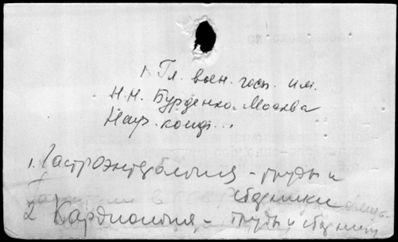 1. Гл. воен. госп. им.
Н.Н. Бурденко. Москва
Науч. конф...
1. Гастроэнтерология - труды и
сборники
2. Кардиология - труды и сборники